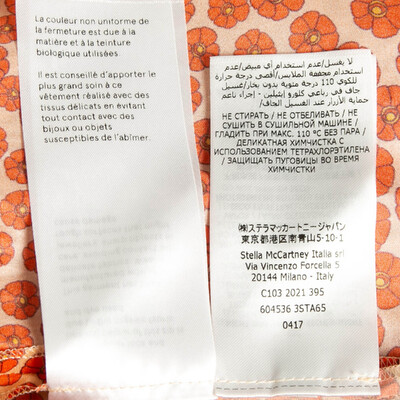 La couleur non uniforme de
la fermeture est due à la
matière et à la teinture
biologique utilisées.
Il est conseillé d'apporter le
plus grand soin à ce
vêtement réalisé avec des
tissus délicats en évitant
tout contact avec des
bijoux ou objets
susceptibles de l'abîmer.
لا يغسل/عدم استخدام أي مبيض/عدم
استخدام مجففة الملابس/أقصى درجة حرارة
للكوي 110 درجة مئوية بدون بخار/غسيل
جاف في رباعي كلورو إيثيلين - إجراء ناعم
/حماية الأزرار عند الغسيل الجاف
НЕ СТИРАТЬ / НЕ ОТБЕЛИВАТЬ / НЕ
СУШИТЬ В СУШИЛЬНОЙ МАШИНЕ /
ГЛАДИТЬ ПРИ МАКС. 110 °C БЕЗ ПАРА /
ДЕЛИКАТНАЯ ХИМЧИСТКА С
ИСПОЛЬЗОВАНИЕМ ТЕТРАХЛОРЭТИЛЕНА
/ ЗАЩИЩАТЬ ПУГОВИЦЫ ВО ВРЕМЯ
ХИМЧИСТКИ
㈱ステラマッカートニージャパン
東京都港区南青山5-10-1
Stella McCartney Italia srl
Via Vincenzo Forcella 5
20144 Milano - Italy
C103 2021 395
604536 3STA65
0417